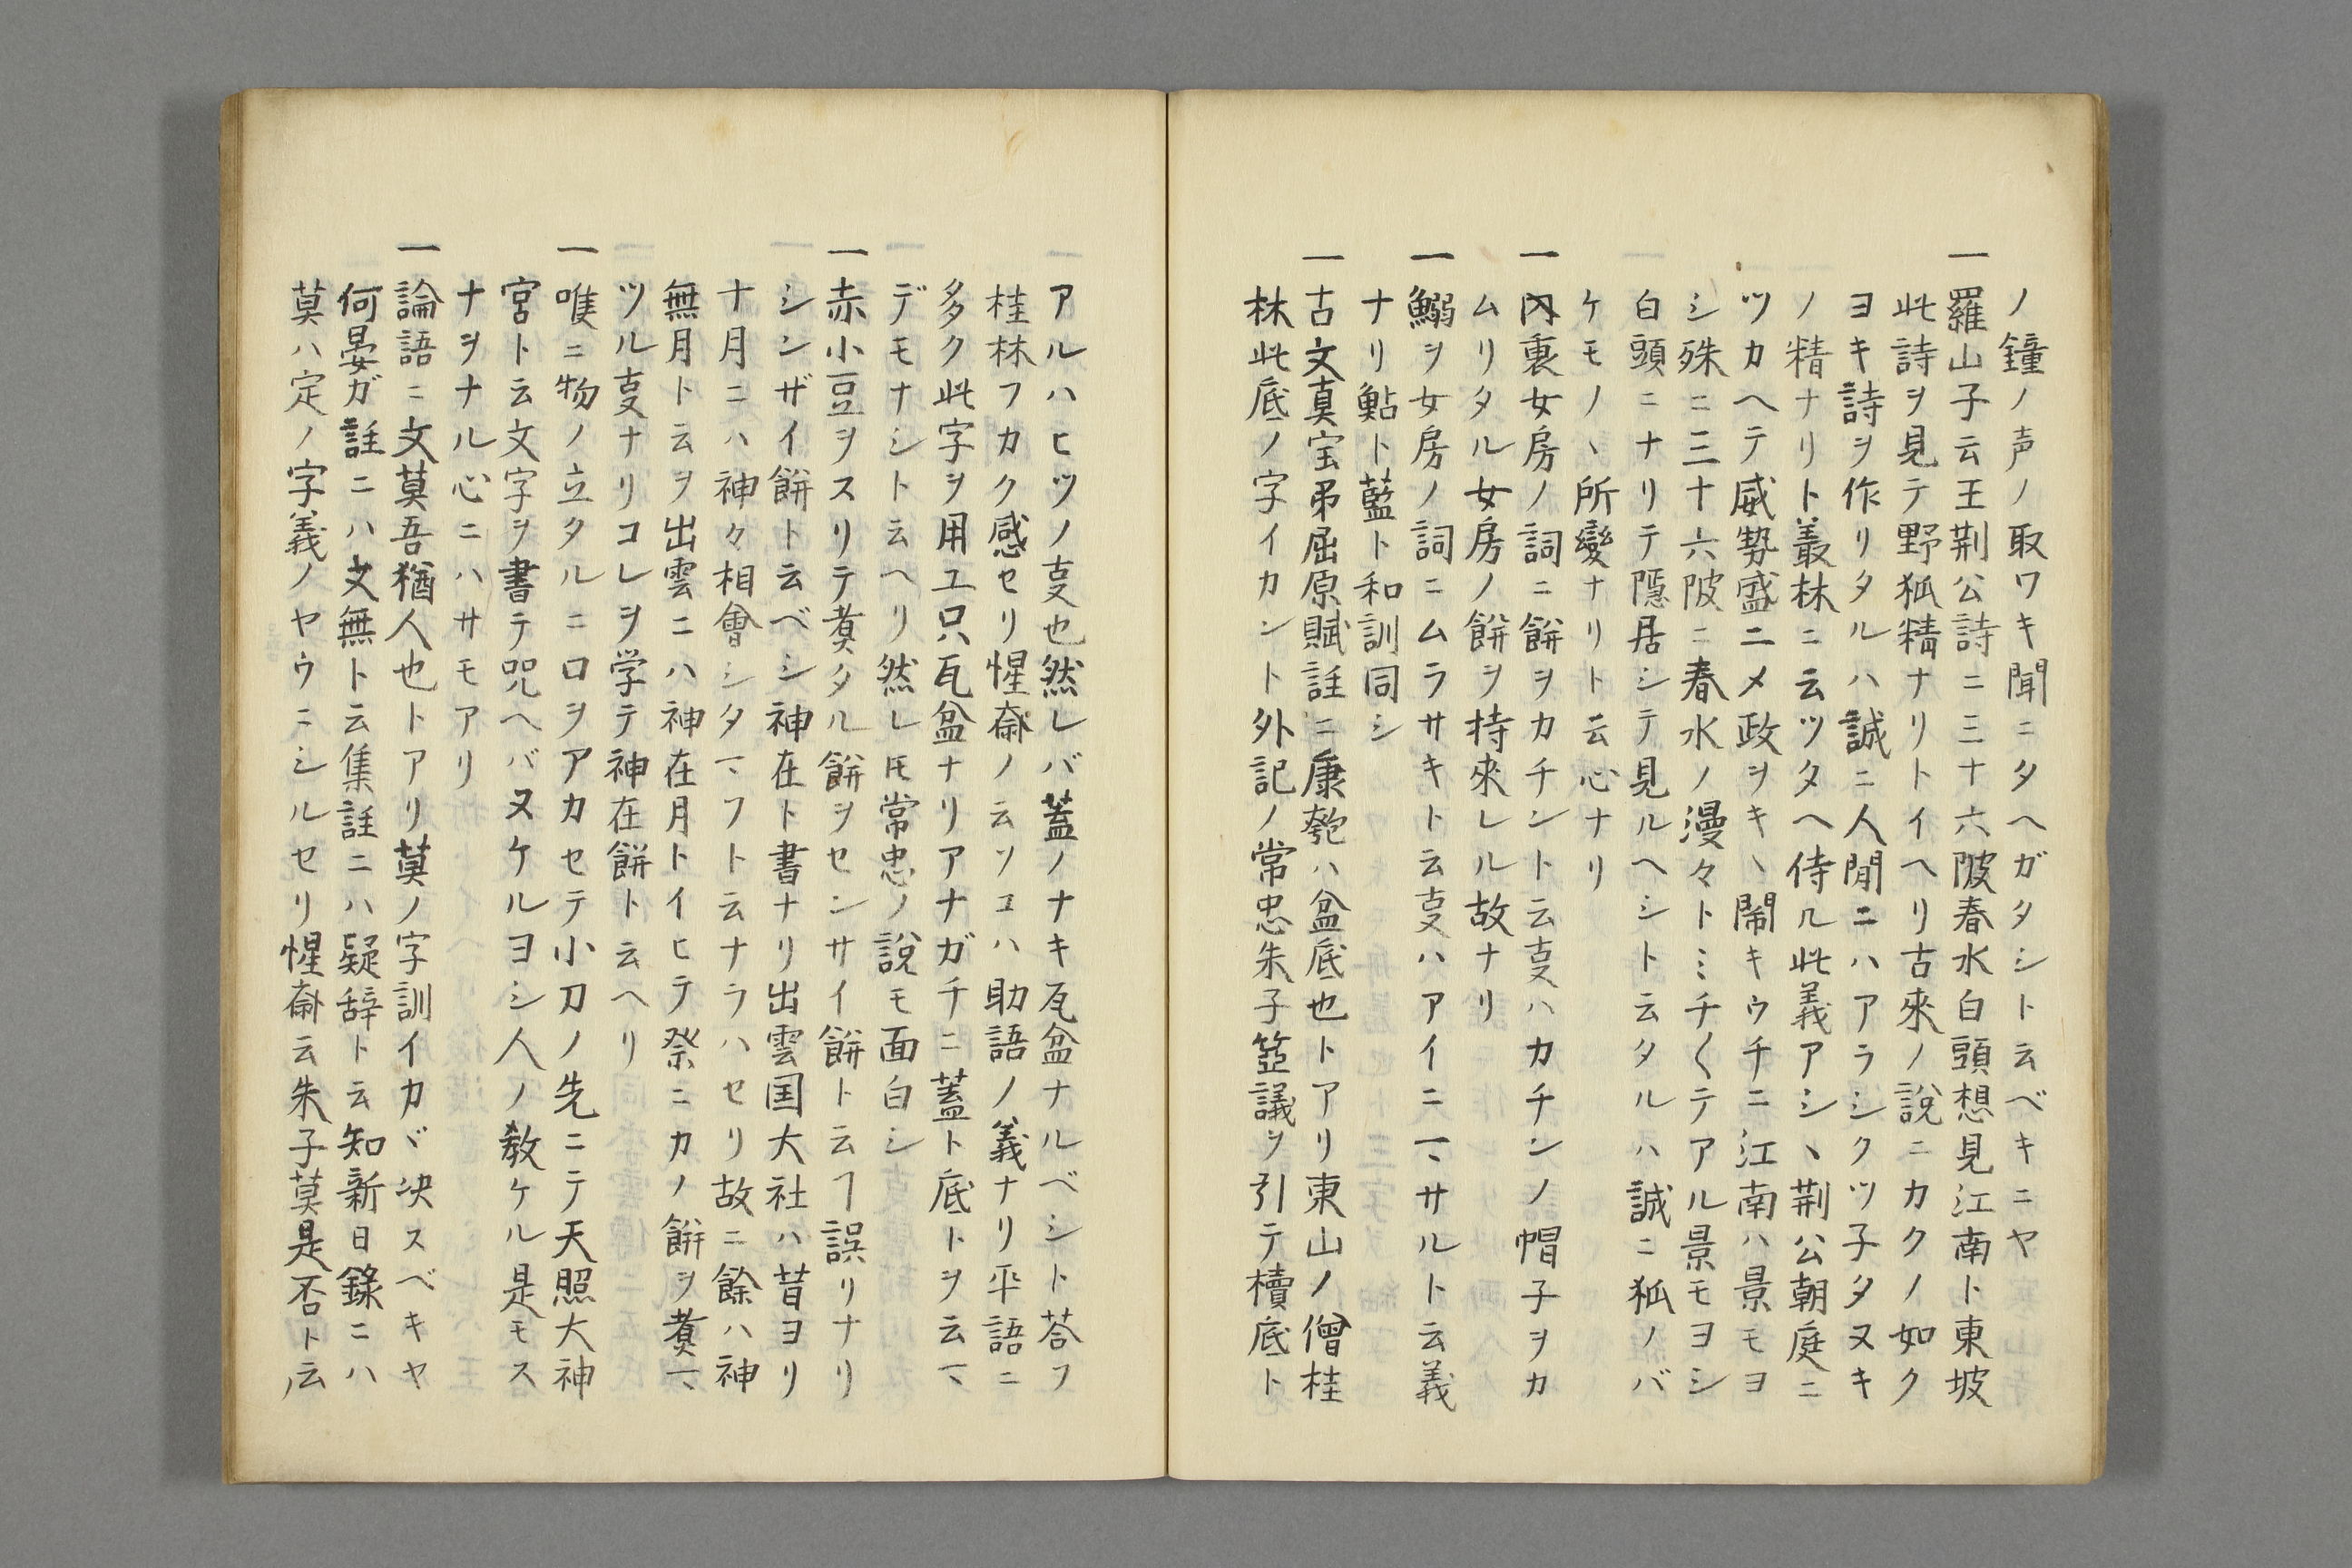 ノ鐘ノ声ノ取ワキ聞ニタヘガタシト云ベキニヤ
一羅山子云王荆公詩ニ三十六陂春水白頭想見江南ト東坡
此詩ヲ見テ野狐精ナリトイヘリ古來ノ說ニカクノ如ク
ヨキ詩ヲ作リタルハ誠ニ人間ニハアラシクツ子タヌキ
ノ精ナリト叢林ニ云ツタヘ侍ル此義アシヽ荆公朝庭ニ
ツカヘテ威勢盛ニメ政ヲキヽ閙キウチニ江南ハ景モヨ
シ殊ニ三十六陂ニ春水ノ漫々トミチ〱テアル景モヨシ
白頭ニナリテ隱居シテ見ルヘシト云タルハ誠ニ狐ノバ
ケモノヽ所變ナリト云心ナリ
一内裏女房ノ詞ニ餅ヲカチント云叓ハカチンノ帽子ヲカ
ムリタル女房ノ餅ヲ持來レル故ナリ
一鰯ヲ女房ノ詞ニムラサキト云叓ハアイニマサルト云義
ナリ鮎ト藍ト和訓同シ
一古文真宝弔屈原賦註ニ康瓠ハ盆底也トアリ東山ノ僧桂
林此底ノ字イカント外記ノ常忠朱子筮議ヲ引テ櫝底ト
アルハヒツノ叓也然レバ蓋ノナキ瓦盆ナルベシト荅フ
桂林フカク感セリ惺斎ノ云ソコハ助語ノ義ナリ平語ニ
多ク此字ヲ用ユ只瓦盆ナリアナガチニ蓋ト底トヲ云マ
デモナシト云ヘリ然レ𪜈常忠ノ說モ面白シ
一赤小豆ヲスリテ煑タル餅ヲセンサイ餅ト云ヿ誤リナリ
シンザイ餅ト云ベシ神在ト書ナリ出雲国大社ハ昔ヨリ
十月ニハ神々相會シタマフト云ナラハセリ故ニ餘ハ神
無月ト云ヲ出雲ニハ神在月トイヒテ祭ニカノ餅ヲ煑マ
ツル叓ナリコレヲ学テ神在餅ト云ヘリ
一唯ニ物ノ立タルニ口ヲアカセテ小刀ノ先ニテ天照大神
宮ト云文字ヲ書テ咒ヘバヌケルヨシ人ノ教ケル是モス
ナヲナル心ニハサモアリ
一論語ニ文莫吾猶人也トアリ莫ノ字訓イカヾ决スベキヤ
何晏ガ註ニハ文無ト云集註ニハ疑辞ト云知新日錄ニハ
莫ハ定ノ字義ノヤウニシルセリ惺斎云朱子莫是否ト云